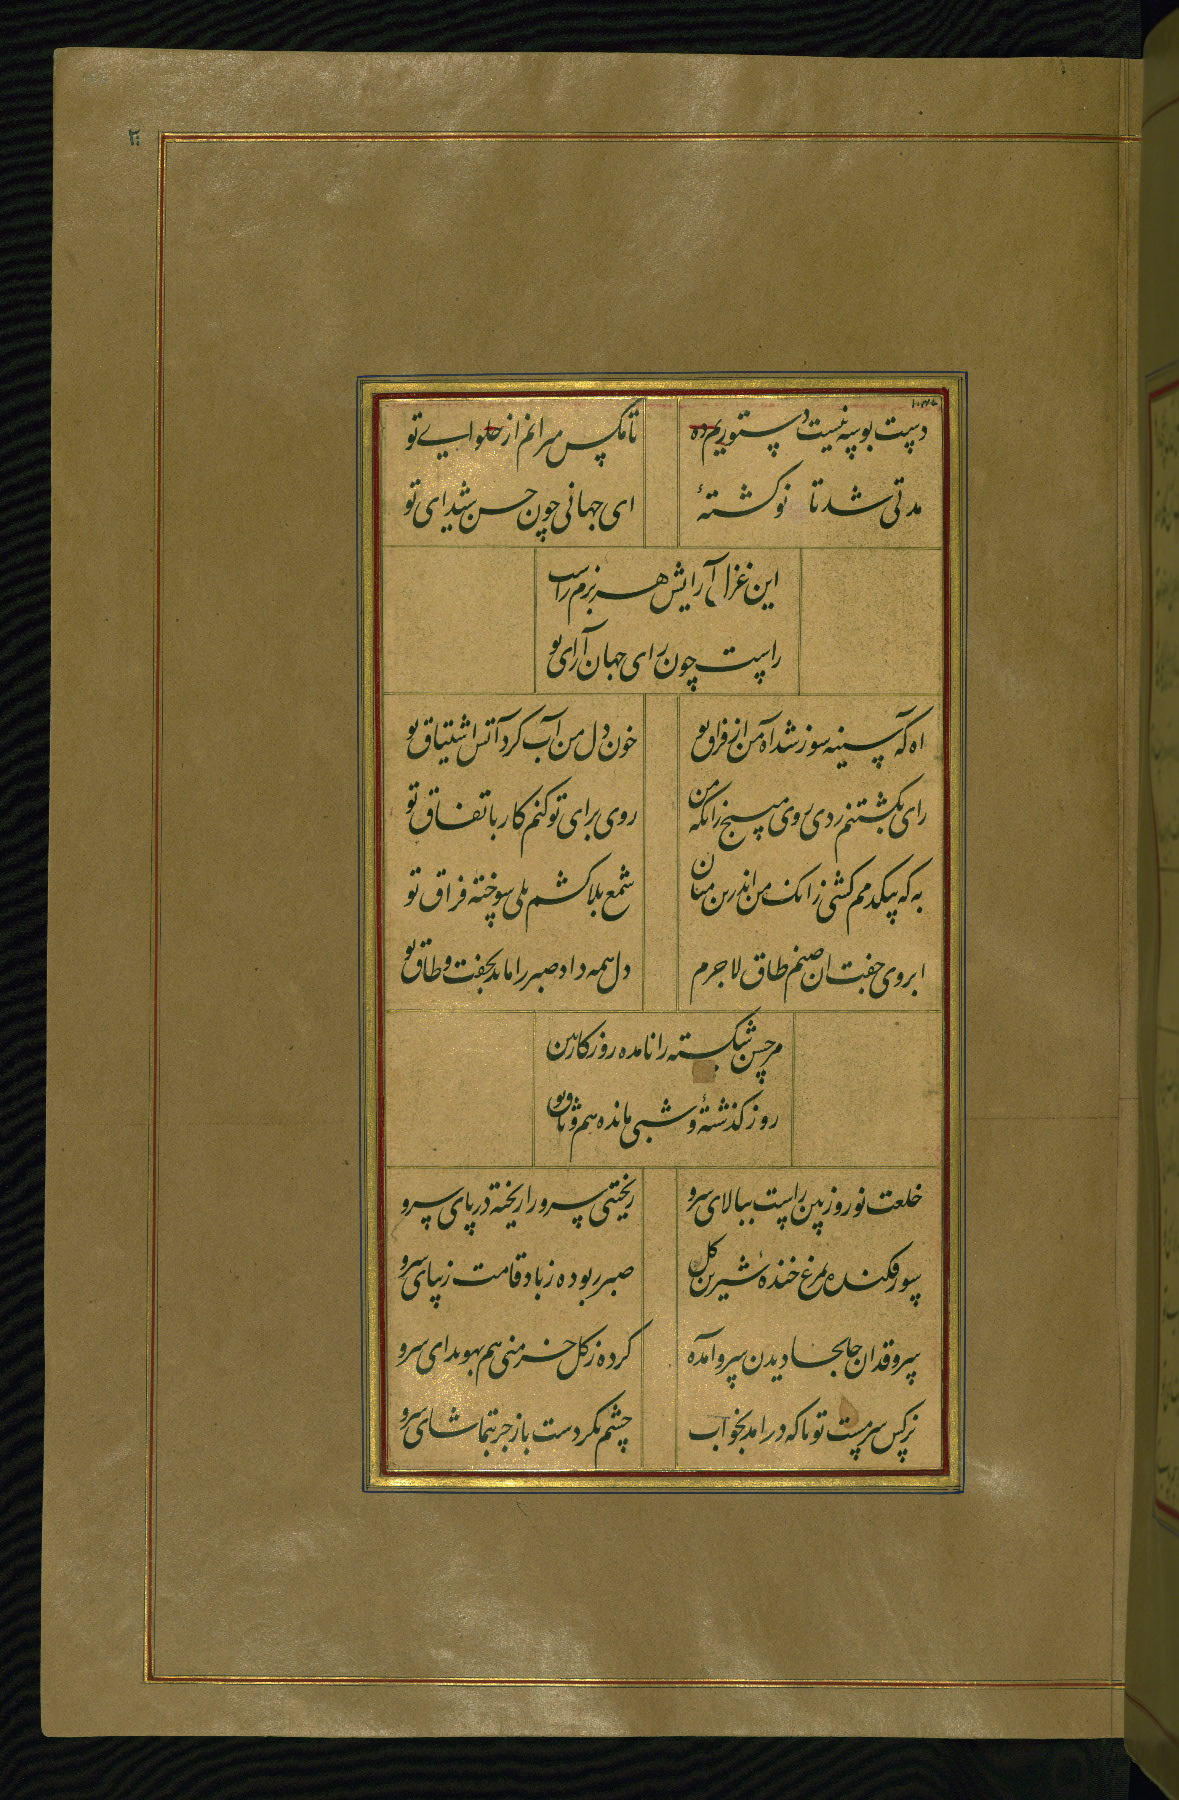 ۳۰
دست بوسه نیست دستوریم ده
تا مکس میرانم از حلوای تو
مدتی شد تا تو کشتهٔ
ای جهانی چون حسن شیدای تو
این غزل آرایش هر بزم راست
راست چون رای جهان آرای تو
اه که سینه سوز شد آه من از فراق تو
خون دل من آب کرد آتش اشتیاق تو
رای بکشتنم زدی روی مپیچ زانکه من
روی برای تو کنم کار باتفاق تو
به که بیکدمم کشی زانک من اندرین میان
شمع بلاکشم ولی سوخته فراق تو
ابروی جفت ان صنم طاق لاجرم
دل همه داد صبر را ماند بجفت و طاق تو
مر حسن شکسته را نامده روز کار بین
روز کذشته و شبی مانده هم وثاق تو
خلعت نوروز بین راست ببالای سرو
ریختی سرو را ریخته در پای سرو
سور فکنده بمرغ خندهٔ شیرین کل
صبر ربوده ز باد قامت زیبای سرو
سرو قدان جابجا دیدن سرو آمده
کرده ز کل خرمنی هم بهوندای سرو
نرکس سرمست تو تا که درامد بخواب
چشم نکردست باز جز بتماشای سرو